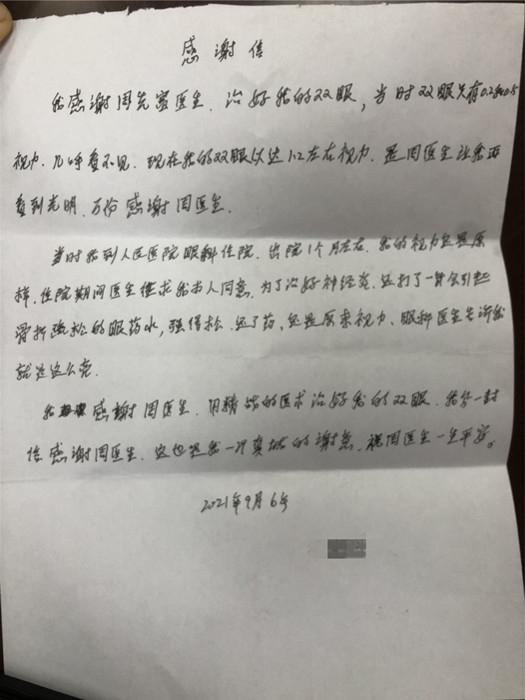 感谢信
我感谢周先蜜医生.治好我的双眼,当时双眼只有0.2和0.5
视力.几呼看不见.现在我的双眼以达1.2左右视力.是周医生让我再
看到光明.万份感谢周医生.
当时我到人民医院眼科住院.出院1个月左右.我的视力还是原
样.住院期间医生征求我本人同意.为了治好神经炎.还打了一针会引起
骨折疏松的眼药水,强得松.还了药.还是原来视力、眼科医生告诉我
就是这么亮.
我感谢周医生.用精湛的医术治好我的双眼.我写一封
信感谢周医生.这也是我一片真诚的谢意.祝周医生一生平安。
2021年9月6号